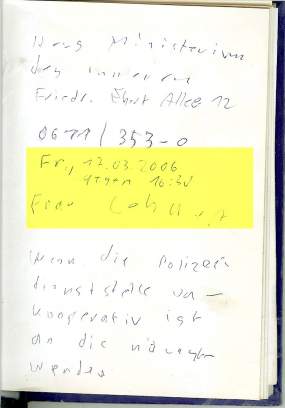 Hess Ministerium
des Inneren
Friedr. Ebert Allee 12
0611/353-0
Fr., 17.03.2006
gegen 16:30
Frau
Wenn die Polizei
dienststelle un-
kooperativ ist
an die nächste
wenden